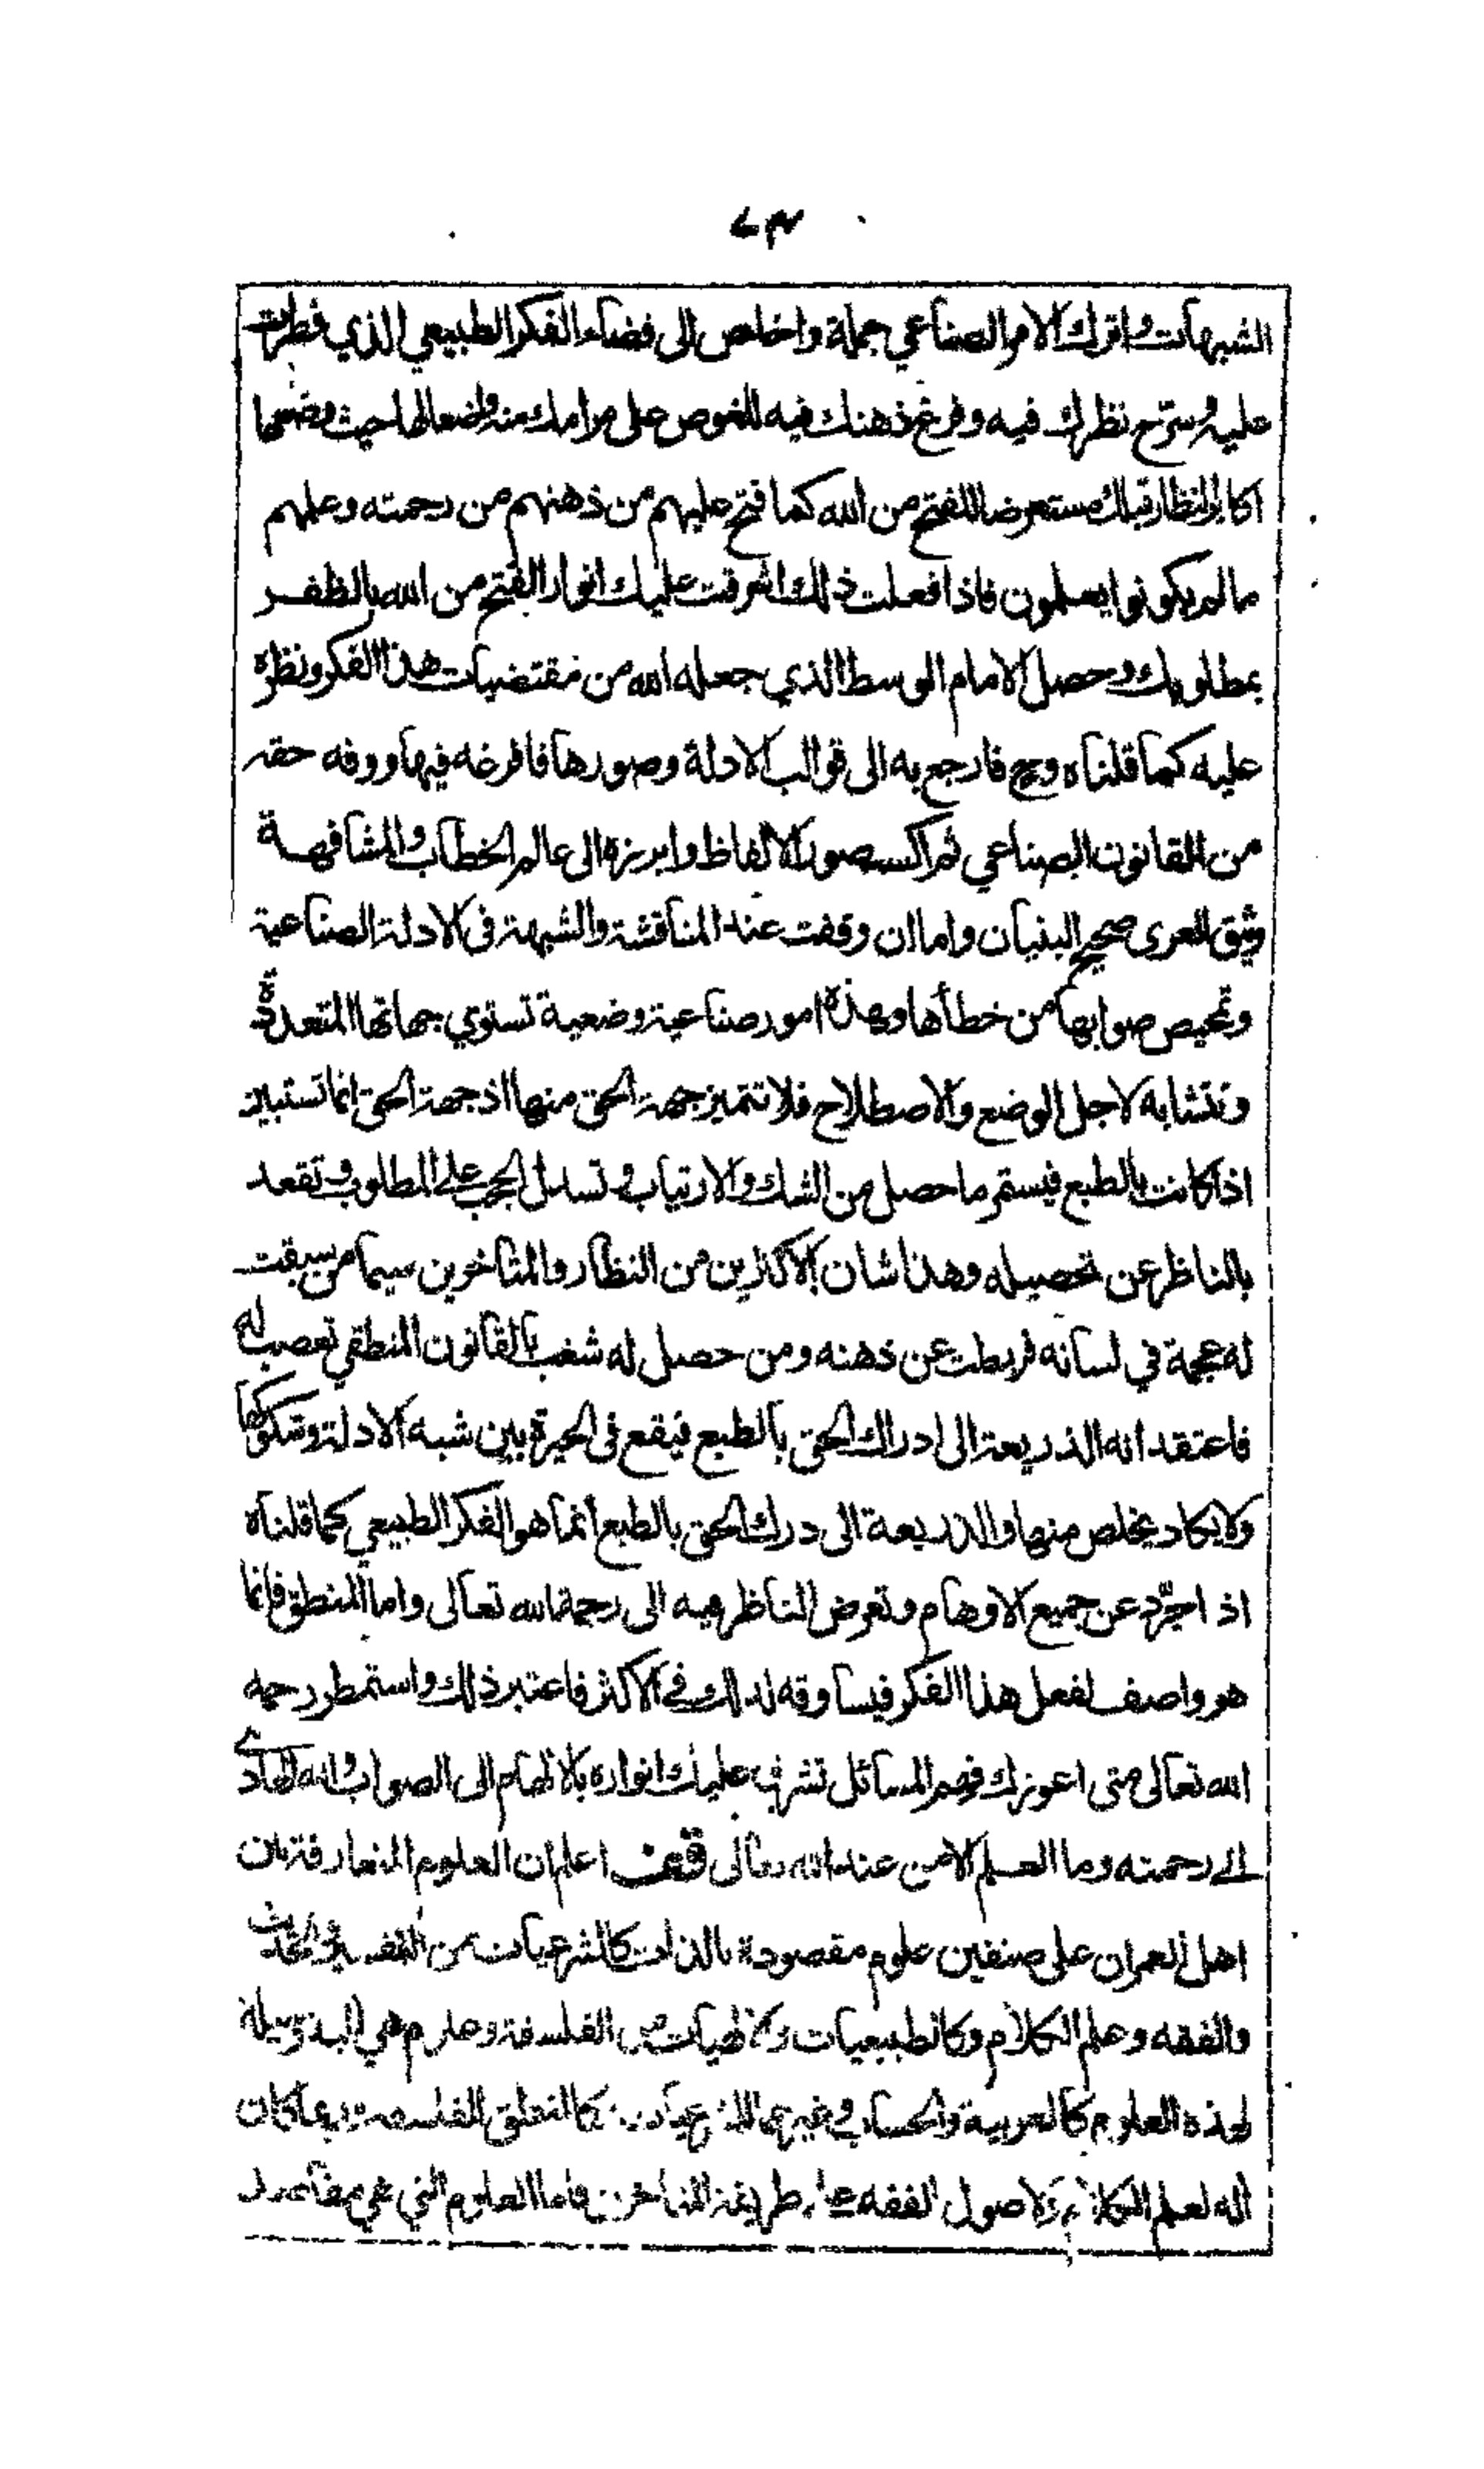 ٧٣
الشبهات واترك الامر الصناعي جملة واخلص الى فضاء الفكر الطبيعي الذي فطرت
عليه وسرح نظرك فيه وفرغ ذهنك فيه للغوص على مرامك منه واضعا لها حيث وضعها
اكابر النظار قبلك مستعرضا للفتح من الله كما فتح عليهم من ذهنهم من رحمته وعلمهم
ما لم يكونوا يعلمون فاذا فعلت ذلك اشرقت عليك انوار الفتح من الله بالظفر
بمطلوبك وحصل الامام الوسط الذي جعله الله من مقتضيات هذا الفكر ونظره
عليه كما قلناه وح فارجع به الى قوالب الادلة وصورها فافرغه فيها ووفه حقه
من القانون الصناعي ثم اكسه صور الالفاظ وابرزه الى عالم الخطاب والمشافهة
وثيق العرى صحيح البنيان واما ان وقفت عند المناقشة والشبهة في الادلة الصناعية
وتمحيص صوابها من خطأها وهذه امور صناعية وضعية تستوي جهاتها المتعددة
وتتشابه لاجل الوضع والاصطلاح فلا تتميز جهة الحق منها اذ جهة الحق انما تستبين
اذا كانت بالطبع فيستمر ما حصل من الشك والارتياب وتسدل الحجب على المطلوب وتقعد
بالناظر عن تحصيله وهذا شان الاكثرين من النظار والمتاخرين سيما من سبقت
له عجمة في لسانه فربطت عن ذهنه ومن حصل له شغب بالقانون المنطقي تعصب له
فاعتقد انه الذريعة الى ادراك الحق بالطبع فيقع في الحيرة بين شبه الادلة وشكوكها
ولا يكاد يخلص منها والذريعة الى درك الحق بالطبع انما هو الفكر الطبيعي كما قلناه
اذا جرد عن جميع الاوهام وتعرض الناظر فيه الى رحمة الله تعالى واما المنطق فانما
هو واصف لفعل هذا الفكر فيساوقه لذلك في الاكثر فاعتبر ذلك واستمطر رحمه
الله تعالى متى اعوزك فهم المسائل تشرق عليك انواره بالالهام الى الصواب والله الهادي
الى رحمته وما العلم الا من عند الله تعالى قف اعلم ان العلوم المتعارفة بين
اهل العمران على صنفين علوم مقصودة بالذات كالشرعيات من التفسير والحديث
والفقه وعلم الكلام وكالطبيعيات والالهيات من الفلسفة وعلوم هي الية وسيلة
لهذه العلوم كالعربية والحساب وغيرهما للشرعيات كالمنطق للفلسفة وربما كان
اله لعلم الكلام ولاصول الفقه على طريقة المتاخرين فاما العلوم التي هي مقاصد